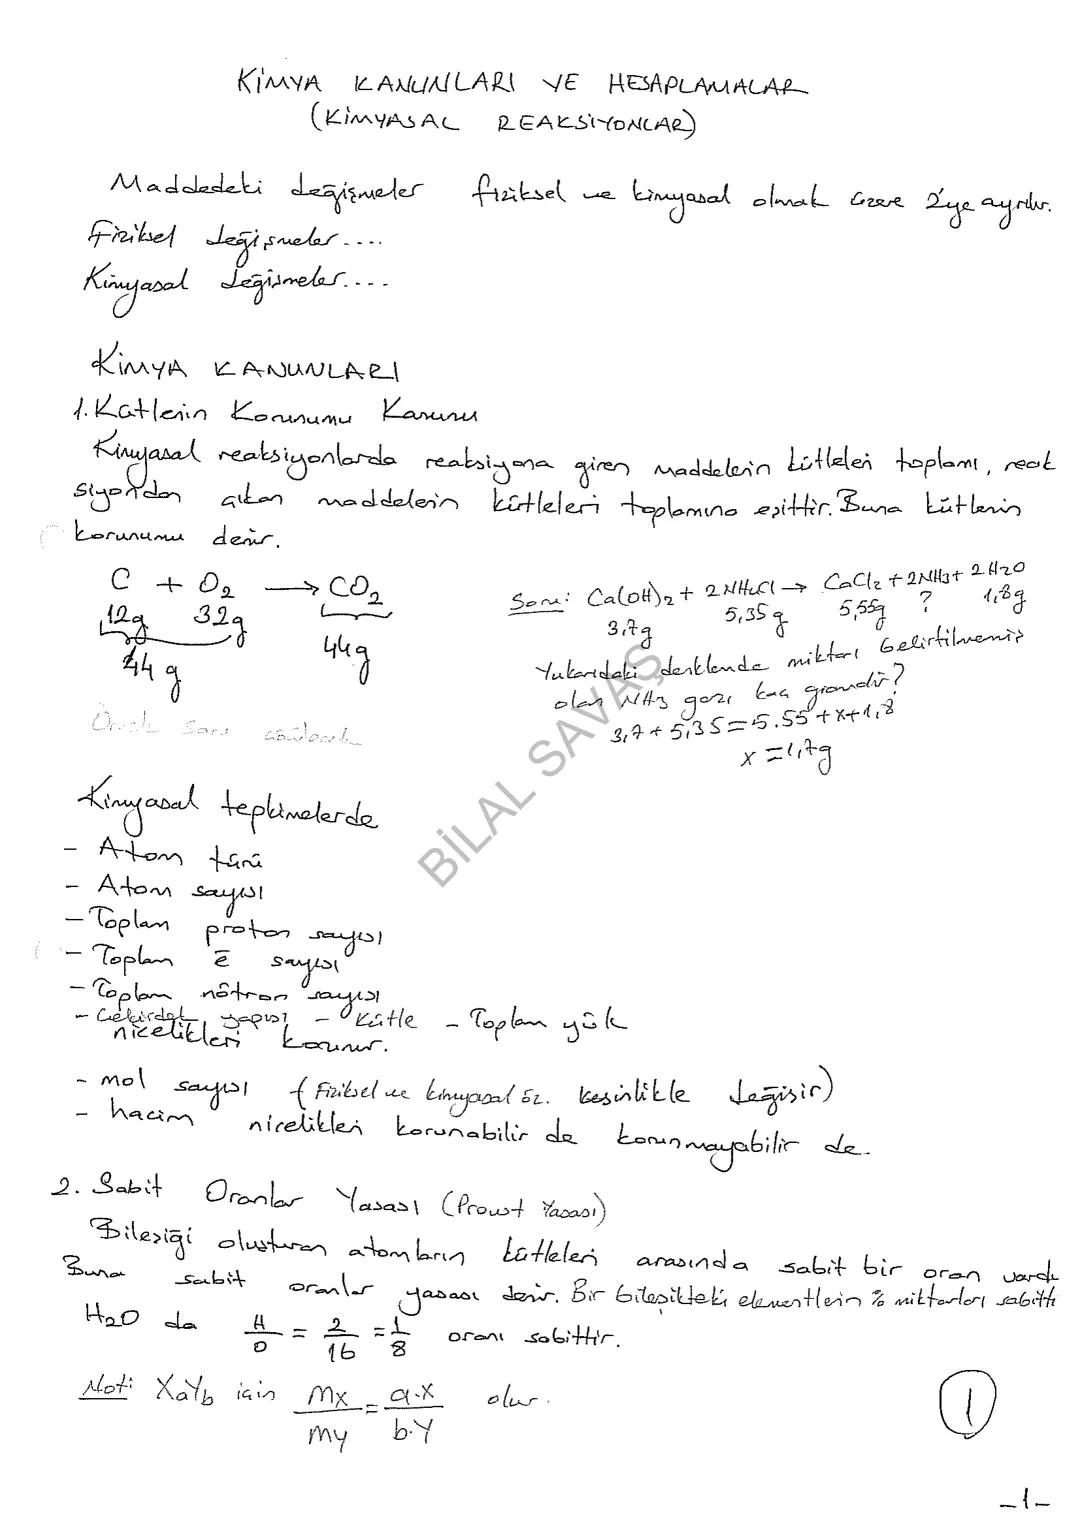 KİMYA KANUNLARI VE HESAPLAMALAR
(KİMYASAL REAKSİYONLAR)
Maddedeki değişmeler fiziksel ve kimyasal olmak üzere 2'ye ayrılır.
Fiziksel değişmeler....
Kimyasal değişmeler....
KİMYA KANUNLARI
1. Kütlenin Korunumu Kanunu
Kimyasal reaksiyonlarda reaksiyona giren maddelerin kütleleri toplamı, reak
siyondan çıkan maddelerin kütleleri toplamına eşittir. Buna kütlenin
korunumu denir.
C + O2 → CO2
12g 32g
44g 44g
Örnek soru çözülecek
Soru: Ca(OH)2 + 2NH4Cl → CaCl2 + 2NH3 + 2H2O
3,7g 5,35g 5,55g ? 1,8g
Yukarıdaki denklemde miktarı belirtilmemiş
olan NH3 gazı kaç gramdır?
3,7 + 5,35 = 5.55 + x + 1,8
x = 1,7g
BİLAL SAVAŞ
Kimyasal tepkimelerde
- Atom türü
- Atom sayısı
- Toplam proton sayısı
- Toplam ē sayısı
- Toplam nötron sayısı
- Çekirdek yapısı - Kütle - Toplam yük
nicelikleri korunur.
- mol sayısı (Fiziksel ve kimyasal öz. kesinlikle değişir)
- hacim nicelikleri korunabilir de korunmayabilir de.
2. Sabit Oranlar Yasası (Proust Yasası)
Bileşiği oluşturan atomların kütleleri arasında sabit bir oran vardır
Buna sabit oranlar yasası denir. Bir bileşikteki elementlerin % miktarları sabittir
H2O da H/O = 2/16 = 1/8 oranı sabittir.
Not: XaYb için mx/my = a.X/b.Y olur.
1
-1-